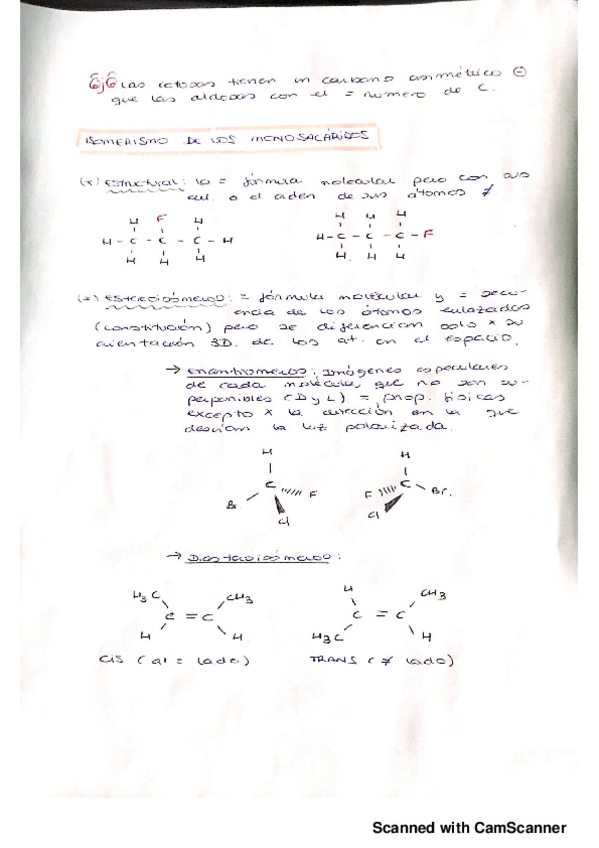 Ej6 Las cetosas tienen un carbono asimétrico ⊖
que las aldosas con el = número de C.
ISOMERISMO DE LOS MONOSACÁRIDOS
(*) Estructural: la = fórmula molecular pero con sus
o el orden de sus átomos ≠
H F H
H - C - C - C - H
H H H
H H H
H - C - C - C - F
H H H
(*) Estereoisómeros: = fórmula molecular y = secu-
encia de los átomos enlazados
(constitución) pero se diferencian solo x su
orientación 3D. de los at. en el espacio.
→ Enantiómeros: Imágenes especulares
de cada molécula, que no son su-
perponibles (D y L) = prop. físicas
excepto x la dirección en la que
desvían la luz polarizada.
H
C
Br F
Cl
H
F C Br.
Cl
→ Diastereoisómeros:
H3C CH3
C = C
H H
CIS (al = lado)
H CH3
C = C
H3C H
TRANS (≠ lado)
Scanned with CamScanner